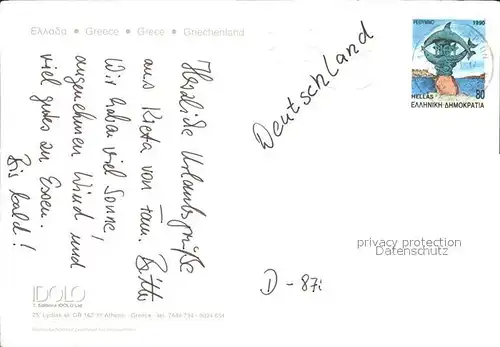 Ελλαδα • Greece • Grece • Griechenland
Herzliche Urlaubsgrüße
aus Kreta von Fam.
Wir haben viel Sonne,
angenehmen Wind und
viel gutes zu Essen.
Bis bald!
Deutschland
ΡΕΘΥΜΝΟ 1990
HELLAS 80
ΕΛΛΗΝΙΚΗ ΔΗΜΟΚΡΑΤΙΑ
privacy protection
Datenschutz
D-87
IDOLO